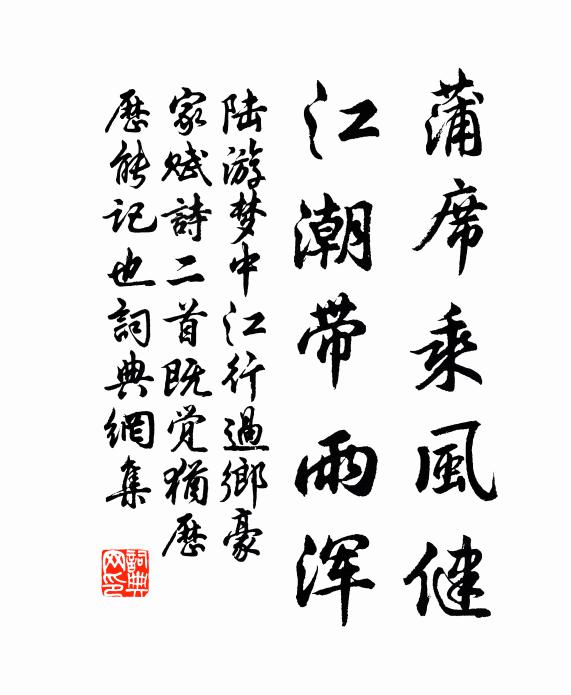 蒲席乘風健
江潮带雨浑
陆游梦中江行過鄉豪
家赋詩二首既觉猶歷
歷能记也詞典網集
詞典网印